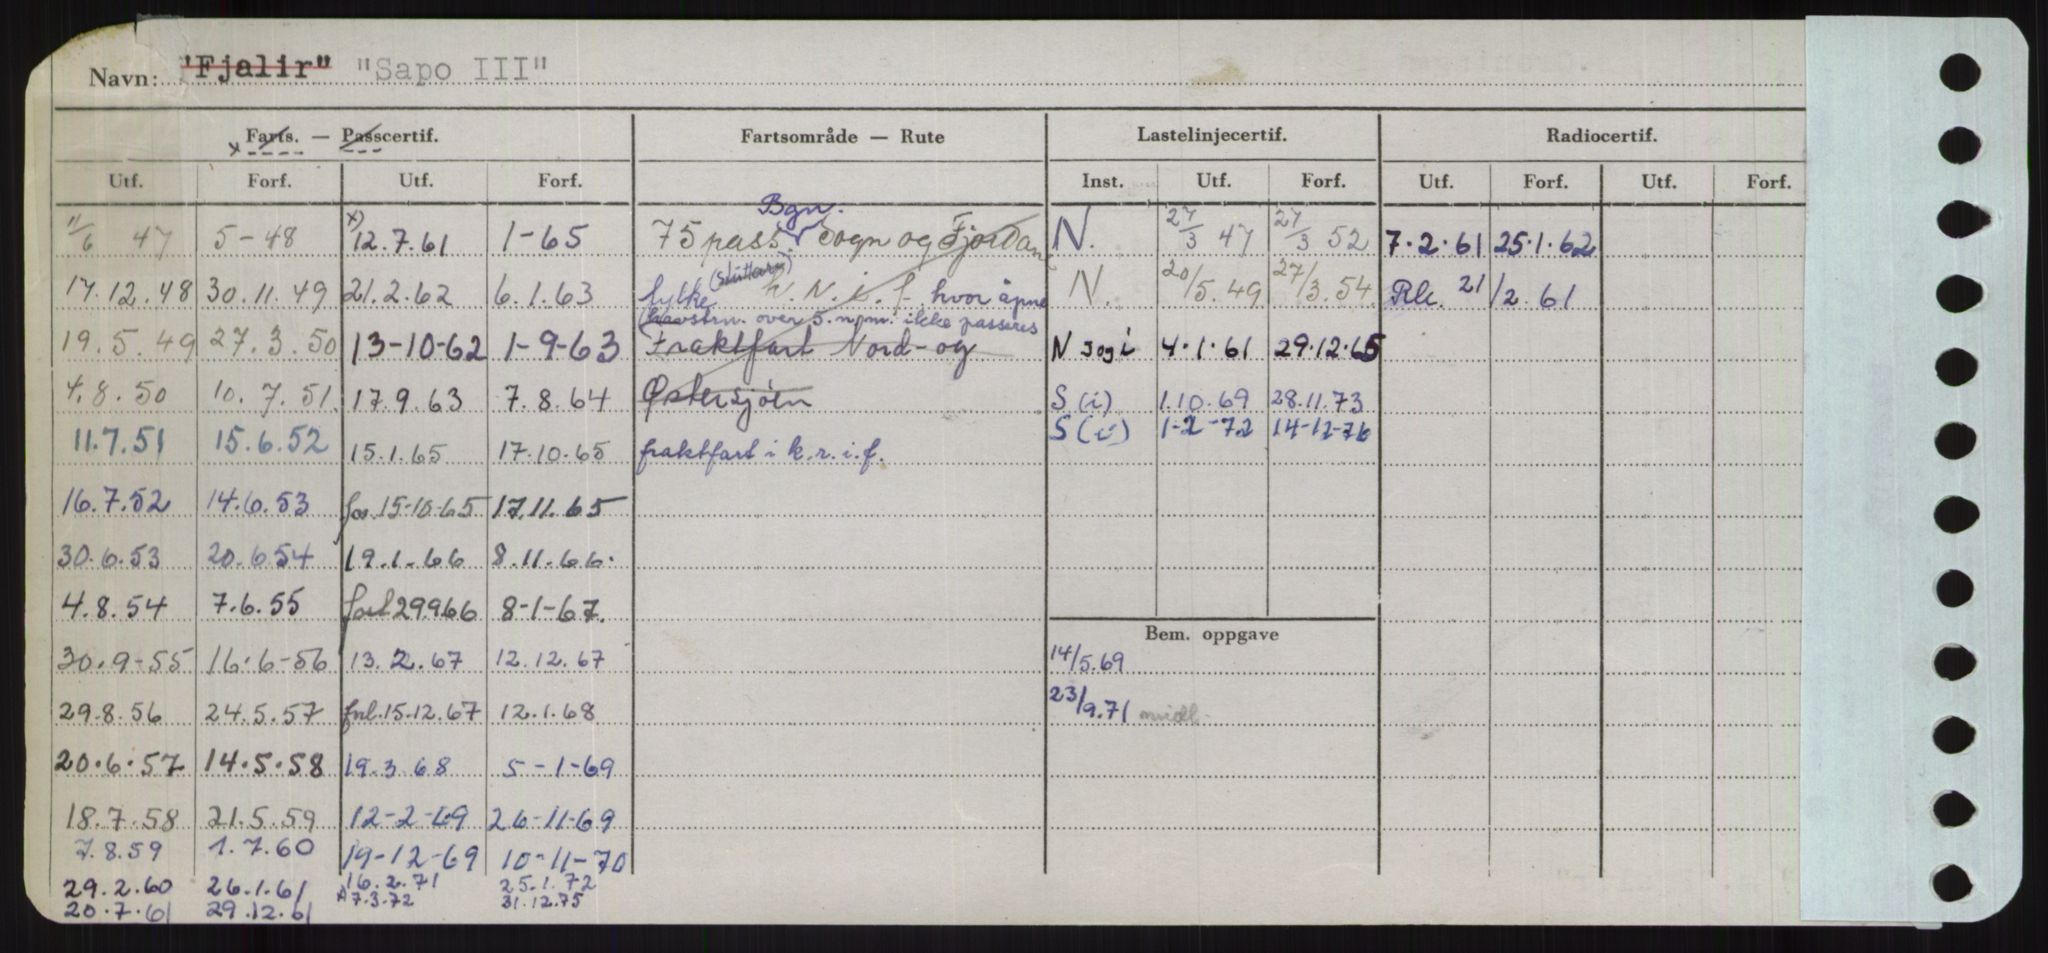 Navn: "Fjalir" "Sapo III"
x Farts. — Passcertif. Fartsområde — Rute Lastelinjecertif. Radiocertif.
Utf. Forf. Utf. Forf. Inst. Utf. Forf. Utf. Forf. Utf. Forf.
Bgn.
11/6 47 5-48 x) 12.7.61 1-65 75 pass. Sogn og Fjordane N. 27/3 47 27/3 52 7.2.61 25.1.62
17.12.48 30.11.49 21.2.62 6.1.63 fylke h.N.i.f. hvor åpne N 20/5.49 27/3.54 Rk. 21/2.61
havstrn. over 5 n.m. ikke passeres
19.5.49 27.3.50 13-10-62 1-9-63 Fraktfart Nord- og N s og i 4.1.61 29.12.65
4.8.50 10.7.51 17.9.63 7.8.64 Østersjöen S (i) 1.10.69 28.11.73
11.7.51 15.6.52 15.1.65 17.10.65 fraktfart i k.r.i.f. S (i) 1-2-72 14-12-76
16.7.52 14.6.53 for. 15-10-65 17.11.65
30.6.53 20.6.54 19.1.66 8.11.66.
4.8.54 7.6.55 forl 29.9.66 8-1-67.
Bem. oppgave
30.9-55 16.6-56 13.2.67 12.12.67 14/5.69
29.8.56 24.5.57 forl. 15.12.67 12.1.68 23/9.71 midl.
20.6.57 14.5.58 19.3.68 5-1-69
18.7.58 21.5.59 12-2-69 26-11-69
7.8.59 1.7.60 19-12-69 10-11-70
29.2.60 26.1.61 16.2.71 25.1.72
20.7.61 29.12.61 x) 7.3.72 31.12.75